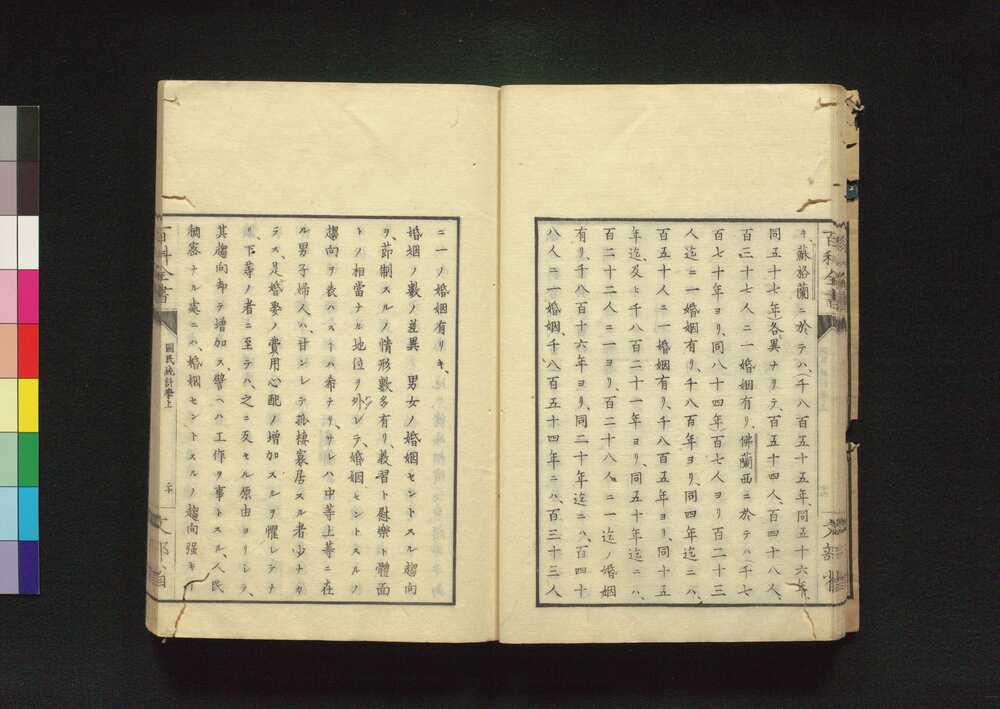 キ、蘇格蘭ニ於テハ、(千八百五十五年、同五十六年、
同五十七年)各異ナリテ、百五十四人、百四十八人、
百三十七人ニ一婚姻有リ、佛蘭西ニ於テハ千七
百七十年ヨリ、同八十四年)百七人ヨリ百二十三
人迄ニ一婚姻有リ、千八百年ヨリ、同四年迄ニハ、
百五十人ニ一婚姻有リ、千八百五年ヨリ、同十五
年迄、及ヒ千八百二十一年ヨリ、同五十年迄ニハ、
百二十二人ニ一ヨリ、百二十八人ニ一迄ノ婚姻
有リ、千八百十六年ヨリ、同二十年迄ニハ、百四十
八人ニ一婚姻、千八百五十四年ニハ、百三十三人
百科全書
文部省
ニ一ノ婚姻有リキ、
婚姻ノ數ノ差異 男女ノ婚姻セントスル趨向
ヲ、節制スルノ情形數多有リ、教習ト慰樂ト體面
トノ相當ナル地位ヲ外レテ、婚姻セントスルノ
趨向ヲ表ハスコトハ希ナリ、サレハ中等上等ニ在
ル男子婦人ハ、甘ンシテ孤棲寡居スル者少ナカ
ラス、是婚娶ノ費用心配ノ増加スルヲ懼レテナ
リ、下等ノ者ニ至テハ、之ニ反セル原由ヨリシテ、
其趨向却テ増加ス、譬ヘハ工作ヲ事トスル、人民
稠密ナル處ニハ、婚姻セントスルノ趨向强キ
百科全書
國民統計學上
文部省